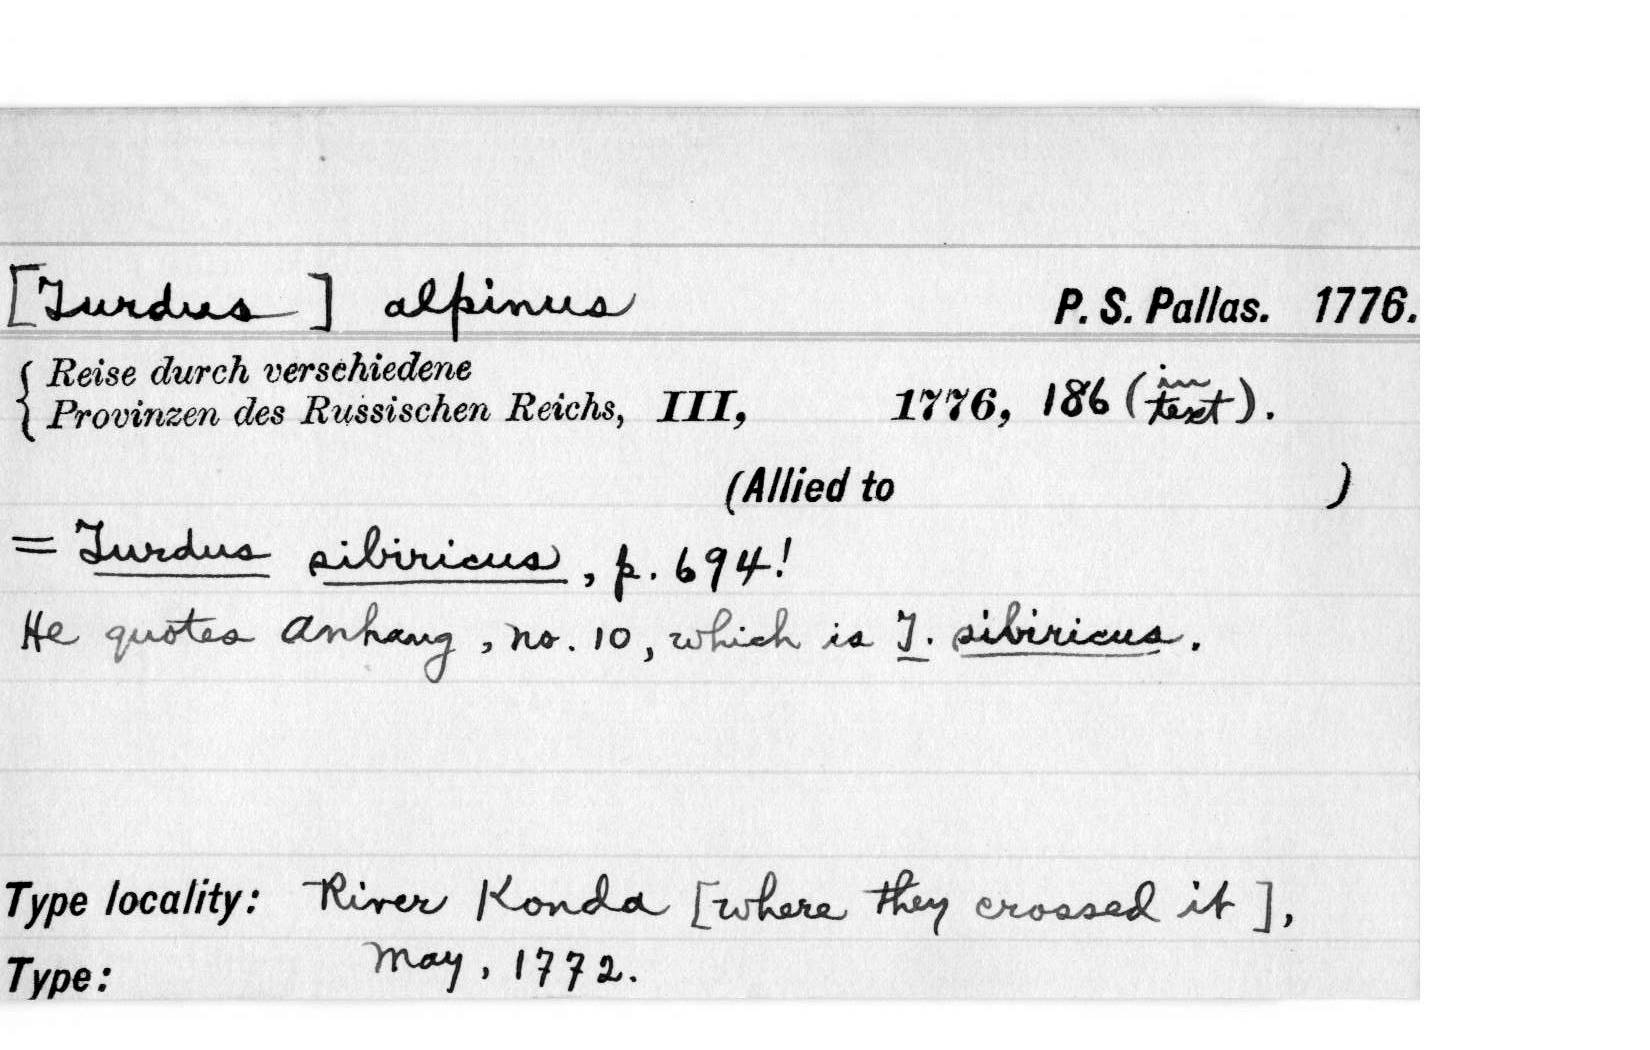 [Turdus] alpinus P. S. Pallas. 1776.
Reise durch verschiedene
Provinzen des Russischen Reichs, III, 1776, 186 (in text).
(Allied to )
= Turdus sibiricus, p. 694!
He quotes Anhang, no. 10, which is T. sibiricus.
Type locality: River Konda [where they crossed it],
May, 1772.
Type: